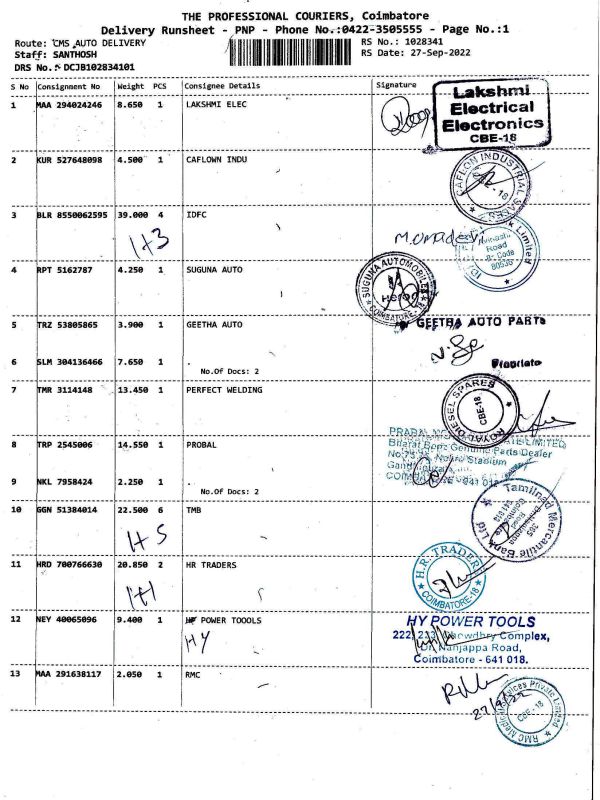 THE PROFESSIONAL COURIERS, Coimbatore
Delivery Runsheet - PNP - Phone No.:0422-3505555 - Page No.:1
Route: CMS AUTO DELIVERY
RS No.: 1028341
Staff: SANTHOSH
RS Date: 27-Sep-2022
DRS No.: DCJB102834101
S No Consignment No Weight PCS Consignee Details Signature
1 MAA 294024246 8.650 1 LAKSHMI ELEC
Lakshmi
Electrical
Electronics
CBE-18
2 KUR 527648098 4.500 1 CAFLOWN INDU
CAFLON INDUSTRIAL SALES
3 BLR 8550062595 39.000 4 IDFC
1+3
M.Umadevi
Limited
Road
Code
4 RPT 5162787 4.250 1 SUGUNA AUTO
SUGUNA AUTOMOBILES
Hero
COIMBATORE-18
5 TRZ 53805865 3.900 1 GEETHA AUTO
GEETHA AUTO PARTS
6 SLM 304136466 7.650 1
No.Of Docs: 2
Propriato
7 TMR 3114148 13.450 1 PERFECT WELDING
ROYAL DIESEL SPARES
CBE-18
8 TRP 2545006 14.550 1 PROBAL
PRABAL
LIMITED
Bharat Benz Genuine Parts Dealer
Nehru Stadium
9 NKL 7958424 2.250 1
No.Of Docs: 2
10 GGN 51384014 22.500 6 TMB
1+5
Tamilnad Mercantile Bank Ltd
11 HRD 700766630 20.850 2 HR TRADERS
1+1
H.R. TRADERS
COIMBATORE-18
12 NEY 40065096 9.400 1 HY POWER TOOOLS
HY
HY POWER TOOLS
222, 223, Chowdhry Complex,
Dr. Nanjappa Road,
Coimbatore - 641 018.
13 MAA 291638117 2.050 1 RMC
27/9/22
RMC Medical Services Private Limited
CBE-18